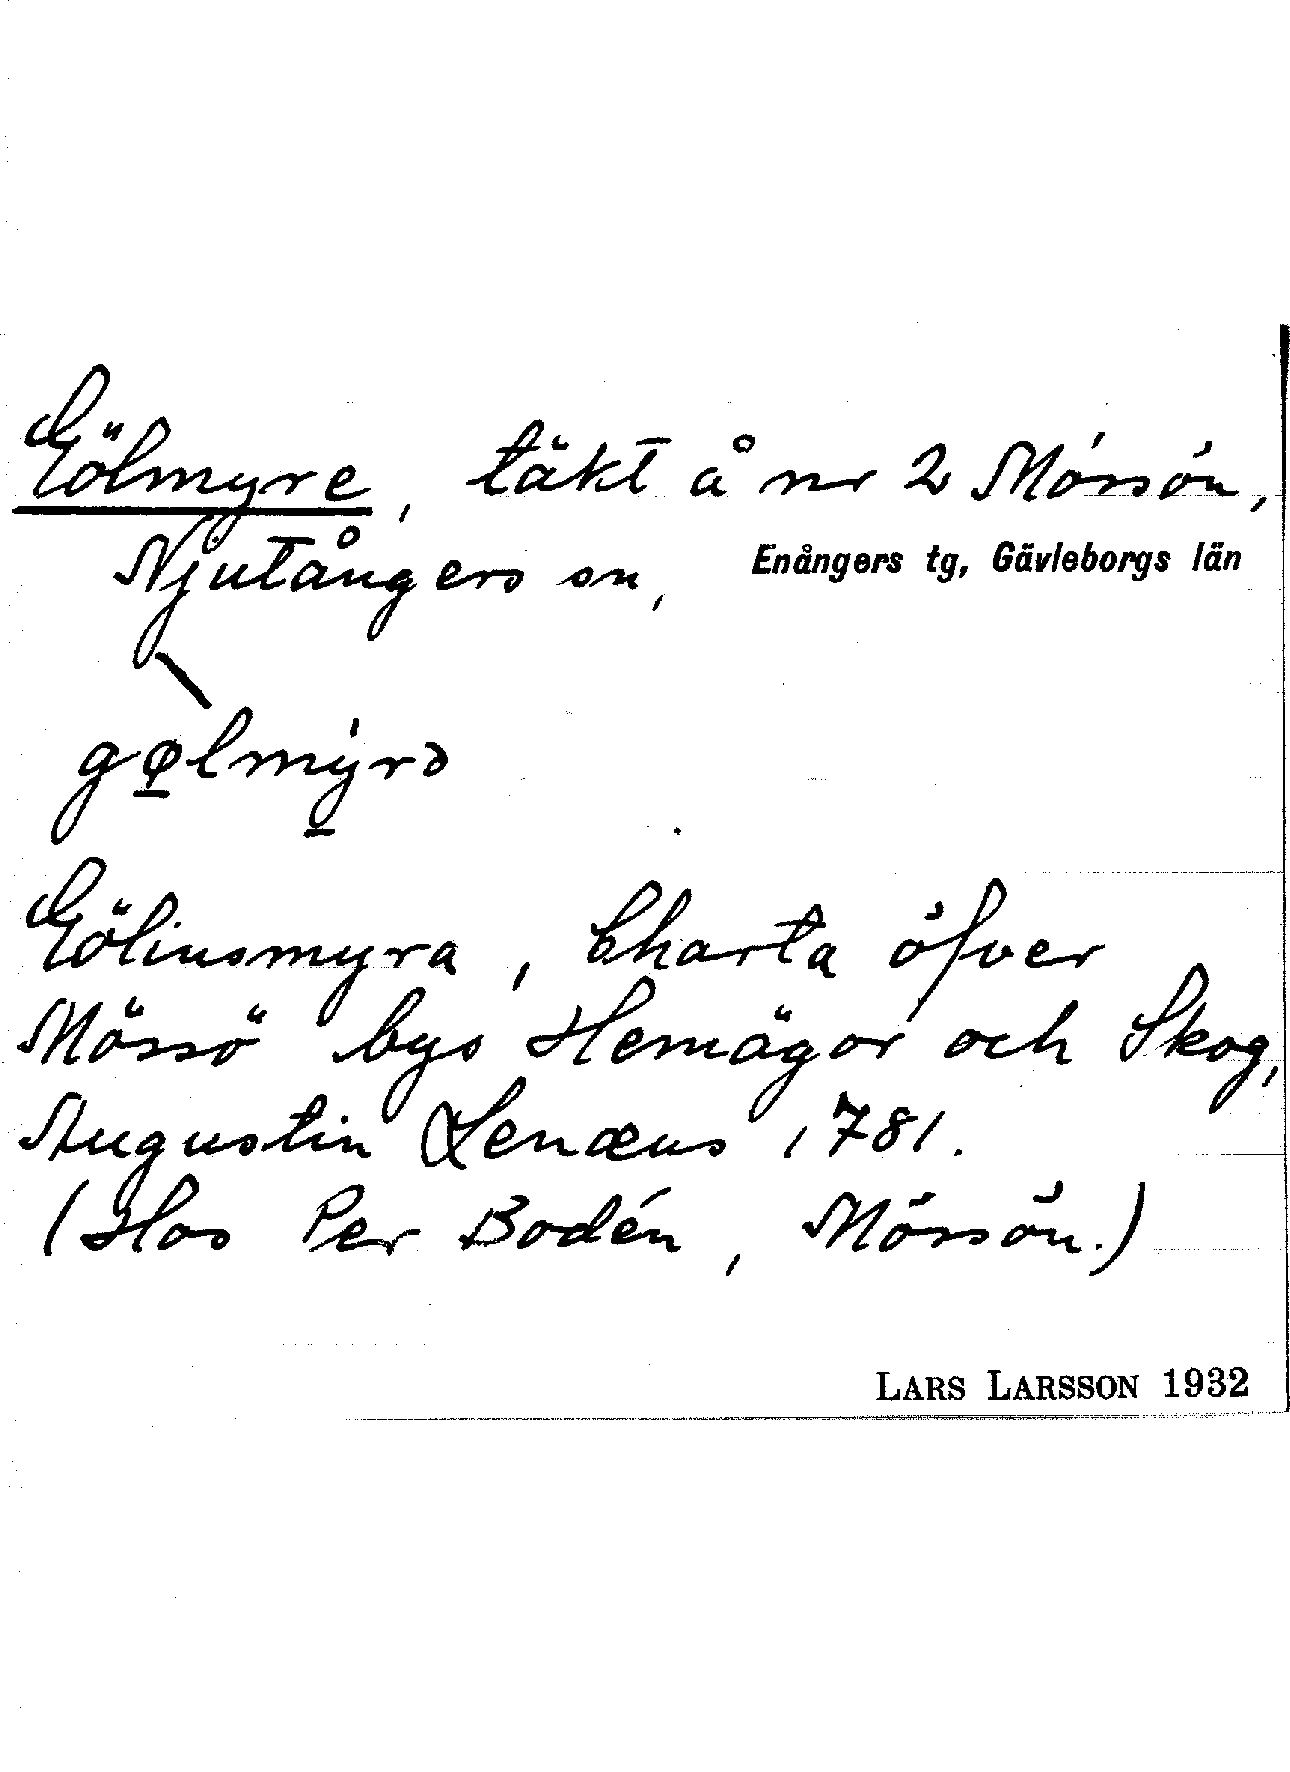 Gölmyre, täkt å nr 2 Mössön,
Njutångers sn, Enångers tg, Gävleborgs län
gølmyrə
Gölinsmyra, Charta öfver
Mössö bys Hemägor och Skog,
Augustin Lenæus 1781.
(Hos Per Bodén, Mössön.)
LARS LARSSON 1932